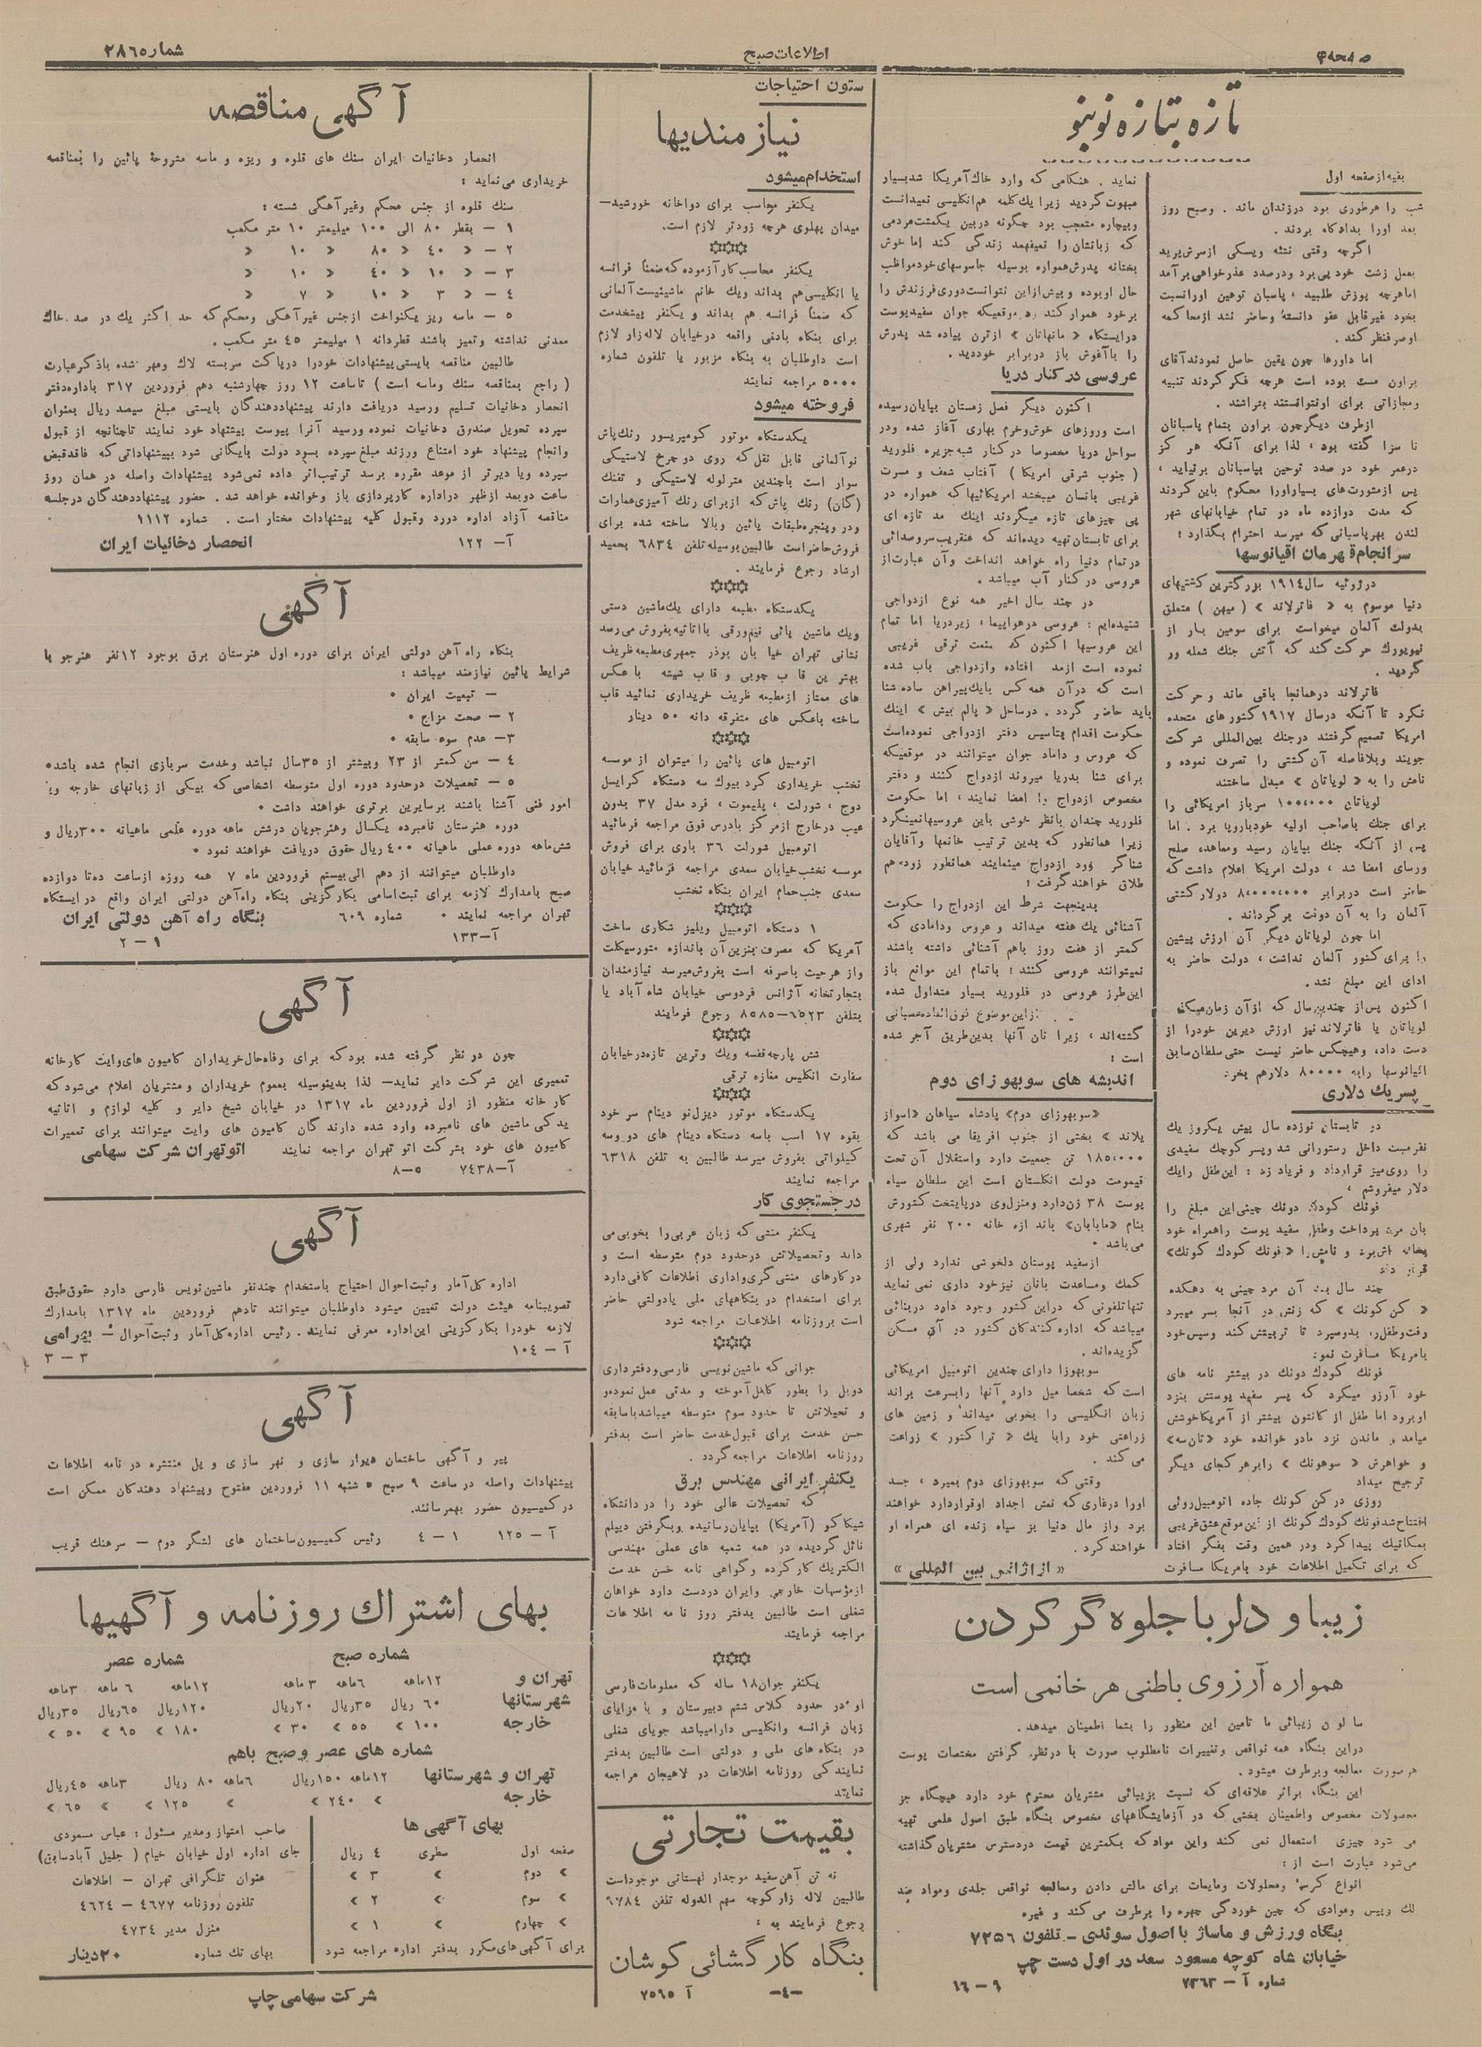 صفحه ۴
اطلاعات صبح
شماره ۲۸۶۵
تازه بتازه نو بنو
بقیه از صفحه اول
شب را هر طوری بود در زندان ماند . و صبح روز
بعد او را بدادگاه بردند .
اگرچه وقتی نشئه ویسکی از سرش پرید
بعمل زشت خود پی برد و در صدد عذر خواهی بر آمد
اما هر چه پوزش طلبید ، پاسبان توهین او را نسبت
بخود غیر قابل عفو دانسته و حاضر نشد از محاکمه
او صرفنظر کند .
اما داورها چون یقین حاصل نمودند آقای
براون مست بوده است هر چه فکر کردند تنبیه
و مجازاتی برای او نتوانستند بتراشند .
از طرف دیگر چون براون بتمام پاسبانان
نا سزا گفته بود ، لذا برای آنکه هر گز
در عمر خود در صدد توهین بپاسبانان برنیاید ،
پس از مشورت های بسیار او را محکوم باین کردند
که مدت دوازده ماه در تمام خیابانهای شهر
لندن بهر پاسبانی که میرسد احترام بگذارد !
سرانجام قهرمان اقیانوسها
در ژوئیه سال ۱۹۱۴ بزرگترین کشتیهای
دنیا موسوم به « فاترلاند » ( میهن ) متعلق
بدولت آلمان میخواست برای سومین بار از
نیویورك حرکت کند که آتش جنك شعله ور
گردید .
فاترلاند در همانجا باقی ماند و حرکت
نکرد تا آنکه در سال ۱۹۱۷ کشورهای متحده
امریکا تصمیم گرفتند در جنك بین المللی شرکت
جویند و بلافاصله آن کشتی را تصرف نموده و
نامش را به « لویاتان » مبدل ساختند
لویاتان ۱۰۰،۰۰۰ سرباز امریکائی را
برای جنك با صاحب اولیه خود باروپا برد . اما
پس از آنکه جنك بپایان رسید و معاهده صلح
ورسای امضا شد ، دولت امریکا اعلام داشت که
حاضر است در برابر ۸،۰۰۰،۰۰۰ دولار کشتی
آلمان را به آن دولت برگرداند .
اما چون لویاتان دیگر آن ارزش پیشین
را برای کشور آلمان نداشت ، دولت حاضر به
ادای این مبلغ نشد .
اکنون پس از چندین سال که از آن زمان میگذرد
لویاتان یا فاترلاند نیز ارزش دیرین خود را از
دست داد ، و هیچکس حاضر نیست حتی سلطان سابق
اقیانوسها را به ۸۰۰۰۰ دلار هم بخرد
پسر یك دلاری
در تابستان نوزده سال پیش یکروز یك
نفر مست داخل رستورانی شد و پسر کوچك سفیدی
را روی میز قرار داد و فریاد زد : این طفل را یك
دلار میفروشم ،
فونك کودك دونك چینی این مبلغ را
بان مرد پرداخت و طفل سفید پوست را همراه خود
بخانه اش برد و نامش را « فونك کودك کونك »
قرار داد
چند سال بعد آن مرد چینی به دهکده
« کن کونك » که زنش در آنجا بسر میبرد
رفت و طفل را بدو سپرد تا تربیتش کند و سپس خود
بامریکا مسافرت نمود
فونك کودك دونك در بیشتر نامه های
خود آرزو میکرد که پسر سفید پوستش بنزد
او برود اما طفل از کانتون بیشتر از آمریکا خوشش
میآمد و ماندن نزد مادر خوانده خود « تان سه »
و خواهرش « سوهونك » را بر هر کجای دیگر
ترجیح میداد
روزی در کن کونك جاده اتومبیل روئی
افتتاح شد فونك کودك کونك از این موقع عشق غریبی
بمکانیك پیدا کرد و در همین وقت بفکر افتاد
که برای تکمیل اطلاعات خود بامریکا مسافرت
نماید . هنگامی که وارد خاك آمریکا شد بسیار
مبهوت گردید زیرا یك کلمه هم انگلیسی نمیدانست
و بیچاره متعجب بود چگونه در بین یکمشت مردمی
که زبانشان را نمیفهمد زندگی کند اما خوش
بختانه پدرش همواره بوسیله جاسوسهای خود مواظب
حال او بوده و بیش از این نتوانست دوری فرزندش را
بر خود هموار کند و موقعیکه جوان سفید پوست
در ایستگاه « مانهاتان » از ترن پیاده شد پدرش
را با آغوش باز در برابر خود دید .
عروسی در کنار دریا
اکنون دیگر فصل زمستان بپایان رسیده
است و روزهای خوش و خرم بهاری آغاز شده و در
سواحل دریا مخصوصا در کنار شبه جزیره فلورید
( جنوب شرقی امریکا ) آفتاب شعف و مسرت
غریبی بانسان میبخشد امریکائیها که همواره در
پی چیزهای تازه میگردند اینك مد تازه ای
برای تابستان تهیه دیده اند که عنقریب سر و صدائی
در تمام دنیا راه خواهد انداخت و آن عبارت از
عروسی در کنار آب میباشد .
در چند سال اخیر همه نوع ازدواجی
شنیده ایم : عروسی در هواپیما ، زیر دریا اما تمام
این عروسیها اکنون که مدت ترقی غریبی
نموده است از مد افتاده و ازدواجی باب شده
است که در آن همه کس با یك پیراهن ساده شنا
باید حاضر گردد . در ساحل « پالم بیش » اینك
حکومت اقدام بتاسیس دفتر ازدواجی نموده است
که عروس و داماد جوان میتوانند در موقعیکه
برای شنا بدریا میروند ازدواج کنند و دفتر
مخصوص ازدواج را امضا نمایند ، اما حکومت
فلورید چندان با نظر خوشی باین عروسیها نمینگرد
زیرا همانطور که بدین ترتیب خانمها و آقایان
شناگر زود ازدواج مینمایند همانطور زود هم
طلاق خواهند گرفت !
بدینجهت شرط این ازدواج را حکومت
آشنائی یك هفته میداند و عروس و دامادی که
کمتر از هفت روز باهم آشنائی داشته باشند
نمیتوانند عروسی کنند ! با تمام این موانع باز
این طرز عروسی در فلورید بسیار متداول شده
از این موضوع فوق العاده عصبانی
گشته اند ، زیرا نان آنها بدین طریق آجر شده
است !
اندیشه های سوبهوزای دوم
«سوبهوزای دوم» پادشاه سیاهان «اسواز
یلاند » بخشی از جنوب افریقا می باشد که
۱۸۵،۰۰۰ تن جمعیت دارد و استقلال آن تحت
قیمومت دولت انگلستان است این سلطان سیاه
پوست ۳۸ زن دارد و منزل وی در پایتخت کشورش
بنام «مابابان» باندازه خانه ۲۰۰ نفر شهری
می باشد .
از سفید پوستان دلخوشی ندارد ولی از
کمك و مساعدت بانان نیز خود داری نمی نماید
تنها تلفونی که در این کشور وجود دارد در بنائی
میباشد که اداره کنندگان کشور در آن مسکن
گزیده اند .
سوبهوزا دارای چندین اتومبیل امریکائی
است که شخصا میل دارد آنها را بسرعت براند
زبان انگلیسی را بخوبی میداند و زمین های
زراعتی خود را با یك « تراکتور » زراعت
می کند .
وقتی که سوبهوزای دوم بمیرد ، جسد
او را در غاری که نعش اجداد او قرار دارد خواهند
برد و از مال دنیا بز سیاه زنده ای همراه او
خواهند کرد .
« از اژانس بین المللی »
زیبا و دلربا جلوه گر کردن
همواره آرزوی باطنی هر خانمی است
سالون زیبائی ما تامین این منظور را بشما اطمینان میدهد .
در این بنگاه همه نواقص و تغییرات نامطلوب صورت با در نظر گرفتن مختصات پوست
هر صورت معالجه و برطرف میشود .
این بنگاه براثر علاقه ای که نسبت بزیبائی مشتریان محترم خود دارد هیچگاه جز
محصولات مخصوص و اطمینان بخشی که در آزمایشگاههای مخصوص بنگاه طبق اصول علمی تهیه
می شود چیزی استعمال نمی کند و این مواد که بکمترین قیمت در دسترس مشتریان گذاشته
می شود عبارت است از :
انواع کرمها و محلولات و مایعات برای مالش دادن و معالجه نواقص جلدی و مواد ضد
لك و پیس و موادی که چین خوردگی چهره را برطرف می کند و غیره
بنگاه ورزش و ماساژ با اصول سوئدی - تلفون ۷۲۵۶
خیابان شاه کوچه مسعود سعد در اول دست چپ
شماره آ - ۷۳۶۳
۹ - ۱۶
ستون احتیاجات
نیازمندیها
استخدام میشود
یکنفر محاسب برای دواخانه خورشید—
میدان پهلوی هر چه زودتر لازم است .
یکنفر محاسب کار آزموده که ضمناً فرانسه
یا انگلیسی هم بداند و یك خانم ماشینیست آلمانی
که ضمناً فرانسه هم بداند و یکنفر پیشخدمت
برای بنگاه بادنی واقعه در خیابان لاله زار لازم
است داوطلبان به بنگاه مزبور یا تلفون شماره
۵۰۰۰ مراجعه نمایند
فروخته میشود
یکدستگاه موتور کومپرسور رنك پاش
نو آلمانی قابل نقل که روی دو چرخ لاستیکی
سوار است با چندین متر لوله لاستیکی و تفنك
(گان) رنك پاش که از برای رنك آمیزی عمارات
و در و پنجره طبقات پائین و بالا ساخته شده برای
فروش حاضر است طالبین بوسیله تلفن ۶۸۳۴ بحمید
ارشاد رجوع فرمایند .
یکدستگاه مطبعه دارای یك ماشین دستی
و یك ماشین پائی نیم ورقی با اثاثیه بفروش می رسد
نشانی تهران خیابان بوذر جمهری مطبعه ظریف
بهترین قاب چوبی و قاب شیشه با عکس
های ممتاز از مطبعه ظریف خریداری نمائید قاب
ساخته با عکس های متفرقه دانه ۵۰ دینار
اتومبیل های پائین را میتوان از موسسه
نخشب خریداری کرد بیوك سه دستگاه کرایسل
دوج ، شورلت ، پلیموت ، فرد مدل ۳۷ بدون
عیب در خارج از مرکز بادرس فوق مراجعه فرمائید
اتومبیل شورلت ۳۶ باری برای فروش
موسسه نخشب خیابان سعدی مراجعه فرمائید خیابان
سعدی جنب حمام ایران بنگاه نخشب
۱ دستگاه اتومبیل ویلیز شکاری ساخت
آمریکا که مصرف بنزین آن باندازه متورسیکلت
و از هر حیث با صرفه است بفروش میرسد نیازمندان
بتجارتخانه آژانس فردوسی خیابان شاه آباد یا
بتلفن ۶۵۲۳—۸۵۸۵ رجوع فرمایند
شش پارچه قفسه و یك وترین تازه در خیابان
سفارت انگلیس مغازه ترقی
یکدستگاه موتور دیزل نو دینام سر خود
بقوه ۱۷ اسب باسه دستگاه دینام های دو و سه
کیلواتی بفروش میرسد طالبین به تلفن ۶۳۱۸
مراجعه نمایند
در جستجوی کار
یکنفر منشی که زبان عربی را بخوبی می
داند و تحصیلاتش در حدود دوم متوسطه است و
در کارهای منشی گری و اداری اطلاعات کافی دارد
برای استخدام در بنگاههای ملی یا دولتی حاضر
است بروزنامه اطلاعات مراجعه شود
جوانی که ماشین نویسی فارسی و دفترداری
دوبل را بطور کامل آموخته و مدتی عمل نموده و
و تحصیلاتش تا حدود سوم متوسطه میباشد با سابقه
حسن خدمت برای قبول خدمت حاضر است بدفتر
روزنامه اطلاعات مراجعه گردد .
یکنفر ایرانی مهندس برق
که تحصیلات عالی خود را در دانشگاه
شیکاگو (آمریکا) بپایان رسانیده و بگرفتن دیپلم
نائل گردیده در همه شعبه های عملی مهندسی
الکتریك کار کرده و گواهی نامه حسن خدمت
از مؤسسات خارجی و ایران در دست دارد خواهان
شغلی است طالبین بدفتر روزنامه اطلاعات
مراجعه فرمایند
یکنفر جوان ۱۸ ساله که معلومات فارسی
او در حدود کلاس ششم دبیرستان و با مزایای
زبان فرانسه و انگلیسی دارا میباشد جویای شغلی
در بنگاه های ملی و دولتی است طالبین بدفتر
نمایندگی روزنامه اطلاعات در لاهیجان مراجعه
نمایند
بقیمت تجارتی
نه تن آهن سفید موجدار لهستانی موجود است
طالبین لاله زار کوچه سهم الدوله تلفن ۶۷۸۴
رجوع فرمایند به :
بنگاه کارگشائی کوشان
-۴-
آ ۷۵۶۵
آگهی مناقصه
انحصار دخانیات ایران سنك های قلوه و ریزه و ماسه مشروحهٔ پائین را بمناقصه
خریداری می نماید :
سنك قلوه از جنس محکم و غیر آهکی شسته :
۱ — بقطر ۸۰ الی ۱۰۰ میلیمتر ۱۰ متر مکعب
۲ — « ۴۰ « ۸۰ « ۱۰ «
۳ — « ۱۰ « ۴۰ « ۱۰ «
۴ — « ۳ « ۱۰ « ۷ «
۵ — ماسه ریز یکنواخت از جنس غیر آهکی و محکم که حد اکثر یك در صد خاك
معدنی نداشته و تمیز باشند قطر دانه ۱ میلیمتر ۴۵ متر مکعب .
طالبین مناقصه بایستی پیشنهادات خود را در پاکت سربسته لاك و مهر شده باذکر عبارت
( راجع بمناقصه سنك و ماسه است ) تا ساعت ۱۲ روز چهارشنبه دهم فروردین ۳۱۷ باداره دفتر
انحصار دخانیات تسلیم و رسید دریافت دارند پیشنهاد دهندگان بایستی مبلغ سیصد ریال بعنوان
سپرده تحویل صندوق دخانیات نموده و رسید آنرا پیوست پیشنهاد خود نمایند تا چنانچه از قبول
و انجام پیشنهاد خود امتناع ورزند مبلغ سپرده بسود دولت بایگانی شود بپیشنهاداتی که فاقد قبض
سپرده و یا دیرتر از موعد مقرره برسد ترتیب اثر داده نمی شود پیشنهادات واصله در همان روز
ساعت دو بعد از ظهر در اداره کارپردازی باز و خوانده خواهد شد . حضور پیشنهاد دهندگان در جلسه
مناقصه آزاد اداره در رد و قبول کلیه پیشنهادات مختار است . شماره ۱۱۱۲
آ- ۱۲۲ انحصار دخانیات ایران
آگهی
بنگاه راه آهن دولتی ایران برای دوره اول هنرستان برق بوجود ۱۲ نفر هنرجو با
شرایط پائین نیازمند میباشد :
— تبعیت ایران •
۲ — صحت مزاج •
۳— عدم سوء سابقه •
۴ — سن کمتر از ۲۳ و بیشتر از ۳۵ سال نباشد و خدمت سربازی انجام شده باشد •
۵ — تحصیلات در حدود دوره اول متوسطه اشخاصی که بیکی از زبانهای خارجه و یا
امور فنی آشنا باشند بر سایرین برتری خواهند داشت •
دوره هنرستان نامبرده یکسال و هنرجویان در شش ماهه دوره علمی ماهیانه ۳۰۰ ریال و
شش ماهه دوره عملی ماهیانه ۴۰۰ ریال حقوق دریافت خواهند نمود •
داوطلبان میتوانند از دهم الی بیستم فروردین ماه ۷ همه روزه از ساعت ده تا دوازده
صبح با مدارك لازمه برای ثبت اسامی بکارگزینی بنگاه راه آهن دولتی ایران واقع در ایستگاه
تهران مراجعه نمایند • شماره ۶۰۹ بنگاه راه آهن دولتی ایران
آ-۱۳۳ ۱ - ۲
آگهی
چون در نظر گرفته شده بود که برای رفاه حال خریداران کامیون های وایت کارخانه
تعمیری این شرکت دایر نماید— لذا بدینوسیله بعموم خریداران و مشتریان اعلام می شود که
کارخانه منظور از اول فروردین ماه ۱۳۱۷ در خیابان شیخ دایر و کلیه لوازم و اثاثیه
یدکی ماشین های نامبرده وارد شده دارندگان کامیون های وایت میتوانند برای تعمیرات
کامیون های خود بشرکت اتو تهران مراجعه نمایند اتو تهران شرکت سهامی
آ-۷۴۳۸ ۵-۸
آگهی
اداره کل آمار و ثبت احوال احتیاج باستخدام چند نفر ماشین نویس فارسی دارد حقوق طبق
تصویبنامه هیئت دولت تعیین میشود داوطلبان میتوانند تا دهم فروردین ماه ۱۳۱۷ با مدارك
لازمه خود را بکارگزینی این اداره معرفی نمایند . رئیس اداره کل آمار و ثبت احوال — بهرامی
آ - ۱۰۴ ۳ - ۳
آگهی
پیر و آگهی ساختمان دیوار سازی و نهر سازی و پل منتشره در نامه اطلاعات
پیشنهادات واصله در ساعت ۹ صبح ۵ شنبه ۱۱ فروردین مفتوح و پیشنهاد دهندگان ممکن است
در کمیسیون حضور بهمرسانند .
آ — ۱۲۵ ۱ — ۴ رئیس کمیسیون ساختمان های لشگر دوم — سرهنك قریب
بهای اشتراك روزنامه و آگهیها
شماره صبح شماره عصر
تهران و ۱۲ماهه ۶ماهه ۳ماهه ۱۲ماهه ۶ ماهه ۳ماهه
شهرستانها ۶۰ ریال ۳۵ریال ۲۰ریال ۱۲۰ریال ۶۵ریال ۳۵ریال
خارجه ۱۰۰ « ۵۵ « ۳۰ « ۱۸۰ « ۹۵ « ۵۰ «
شماره های عصر و صبح باهم
تهران و شهرستانها ۱۲ماهه ۱۵۰ریال ۶ماهه ۸۰ ریال ۳ماهه ۴۵ریال
خارجه « ۲۴۰ « « ۱۲۵ « « ۶۵ «
بهای آگهی ها
صفحه اول سطری ۴ ریال
« دوم « ۳ «
« سوم « ۲ «
« چهارم « ۱ «
برای آگهی های مکرر بدفتر اداره مراجعه شود
صاحب امتیاز و مدیر مسئول : عباس مسعودی
جای اداره اول خیابان خیام ( جلیل آباد سابق)
عنوان تلگرافی تهران — اطلاعات
تلفون روزنامه ۴۶۷۷ — ۴۶۲۴
منزل مدیر ۴۷۳۴
بهای تك شماره ۲۰ دینار
شرکت سهامی چاپ